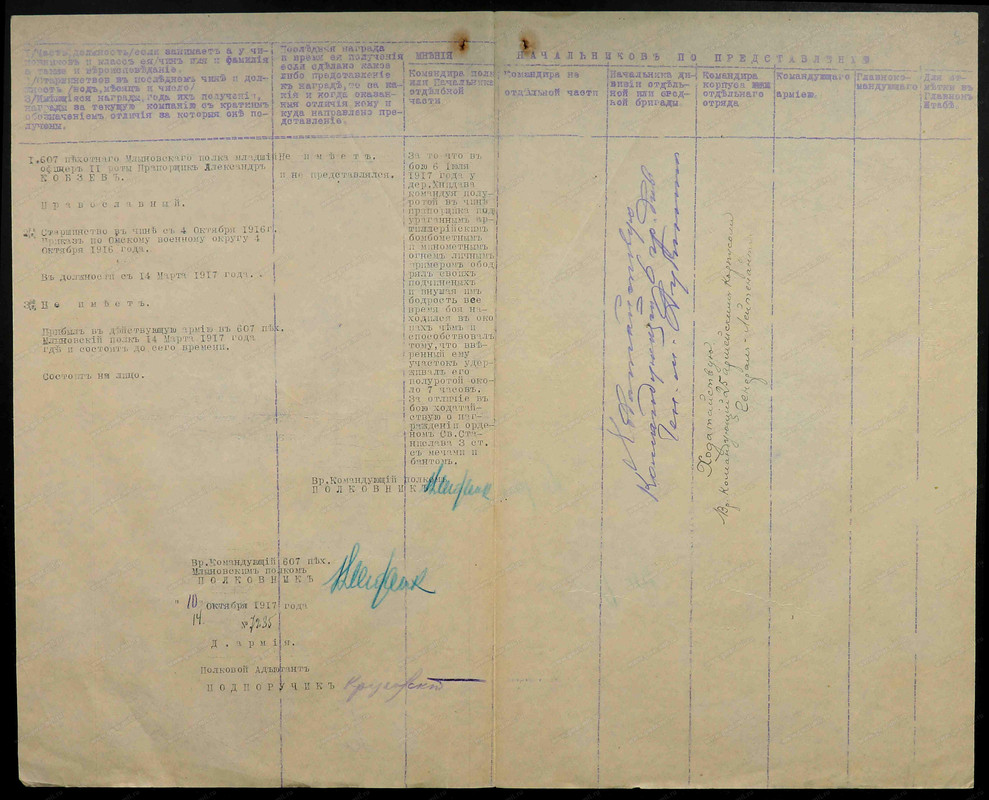 1/Часть должность/если занимаетъ а у чи-
новниковъ и классъ ея/чинъ имя и фамилія
а также и вѣроисповѣданіе.
2/Старшинство въ послѣднемъ чинѣ и дол-
жность /годъ, мѣсяцъ и число/
3/Имѣющіеся награды, года ихъ полученія,
награды за текущую компанію съ краткимъ
обозначеніемъ отличія за которыя онѣ по-
лучены.
Послѣдняя награда
и время ея полученія
если сдѣлано какое
либо представленіе
къ наградѣ, то на ка-
кія и когда оказан-
ныя отличія кому и
куда направлено пре-
дставленіе.
МНѢНІЯ НАЧАЛЬНИКОВЪ ПО ПРЕДСТАВЛЕНІЮ
Командира полка
или Начальника
отдѣльной
части
Командира на
отдѣльной части
Начальника ди-
визіи отдѣль-
ной или бригад-
ной бригады.
Командира
корпуса или
отдѣльнаго
отряда
Командующаго
арміею.
Главноко-
мандующаго
Для от-
мѣтки въ
Главномъ
Штабѣ.
1. 607 пѣхотнаго Млыновскаго полка младшій
офицеръ 11 роты Прапорщикъ Александръ
КОБЗЕВЪ.
Православный.
2/ Старшинство въ чинѣ съ 4 Октября 1916г.
Приказъ по Омскому военному округу 4
Октября 1916 года.
Въ должности съ 14 Марта 1917 года.
3/ Не имѣетъ.
Прибылъ въ дѣйствующую армію въ 607 пѣх.
Млыновскій полкъ 14 Марта 1917 года
гдѣ и состоитъ до сего времени.
Состоитъ на лицо.
Не имѣетъ.
и не представлялся.
За то что въ
бою 6 Іюля
1917 года у
дер.
командуя полу-
ротой въ чинѣ
прапорщика под
ураганнымъ ар-
тиллерійскимъ
бомбометнымъ
и минометнымъ
огнемъ личнымъ
примѣромъ обод
рялъ своихъ
подчиненыхъ
и внушая имъ
бодрость все
время боя на-
ходился въ око
пахъ чѣмъ и
способствовалъ
тому, что ввѣ-
ренный ему
участокъ удер-
живалъ его
полуротой око-
ло 7 часовъ.
За отличіе въ
бою ходатай-
ствую о наг-
ражденіи орде-
номъ Св. Ста-
нислава 3 ст.
съ мечами и
бантомъ.
Вр. Командующій полкомъ
ПОЛКОВНИКЪ
Ходатайствую
Командующій
Ген.-м.
Ходатайствую
Вр. Командующій 25 армейскимъ Корпусомъ
Генералъ-Лейтенантъ
Вр. Командующій 607 пѣх.
Млыновскимъ полкомъ
ПОЛКОВНИКЪ
" 10 Октября 1917 года
14
№ 7235
Д. армія.
Полковой Адъютантъ
ПОДПОРУЧИКЪ